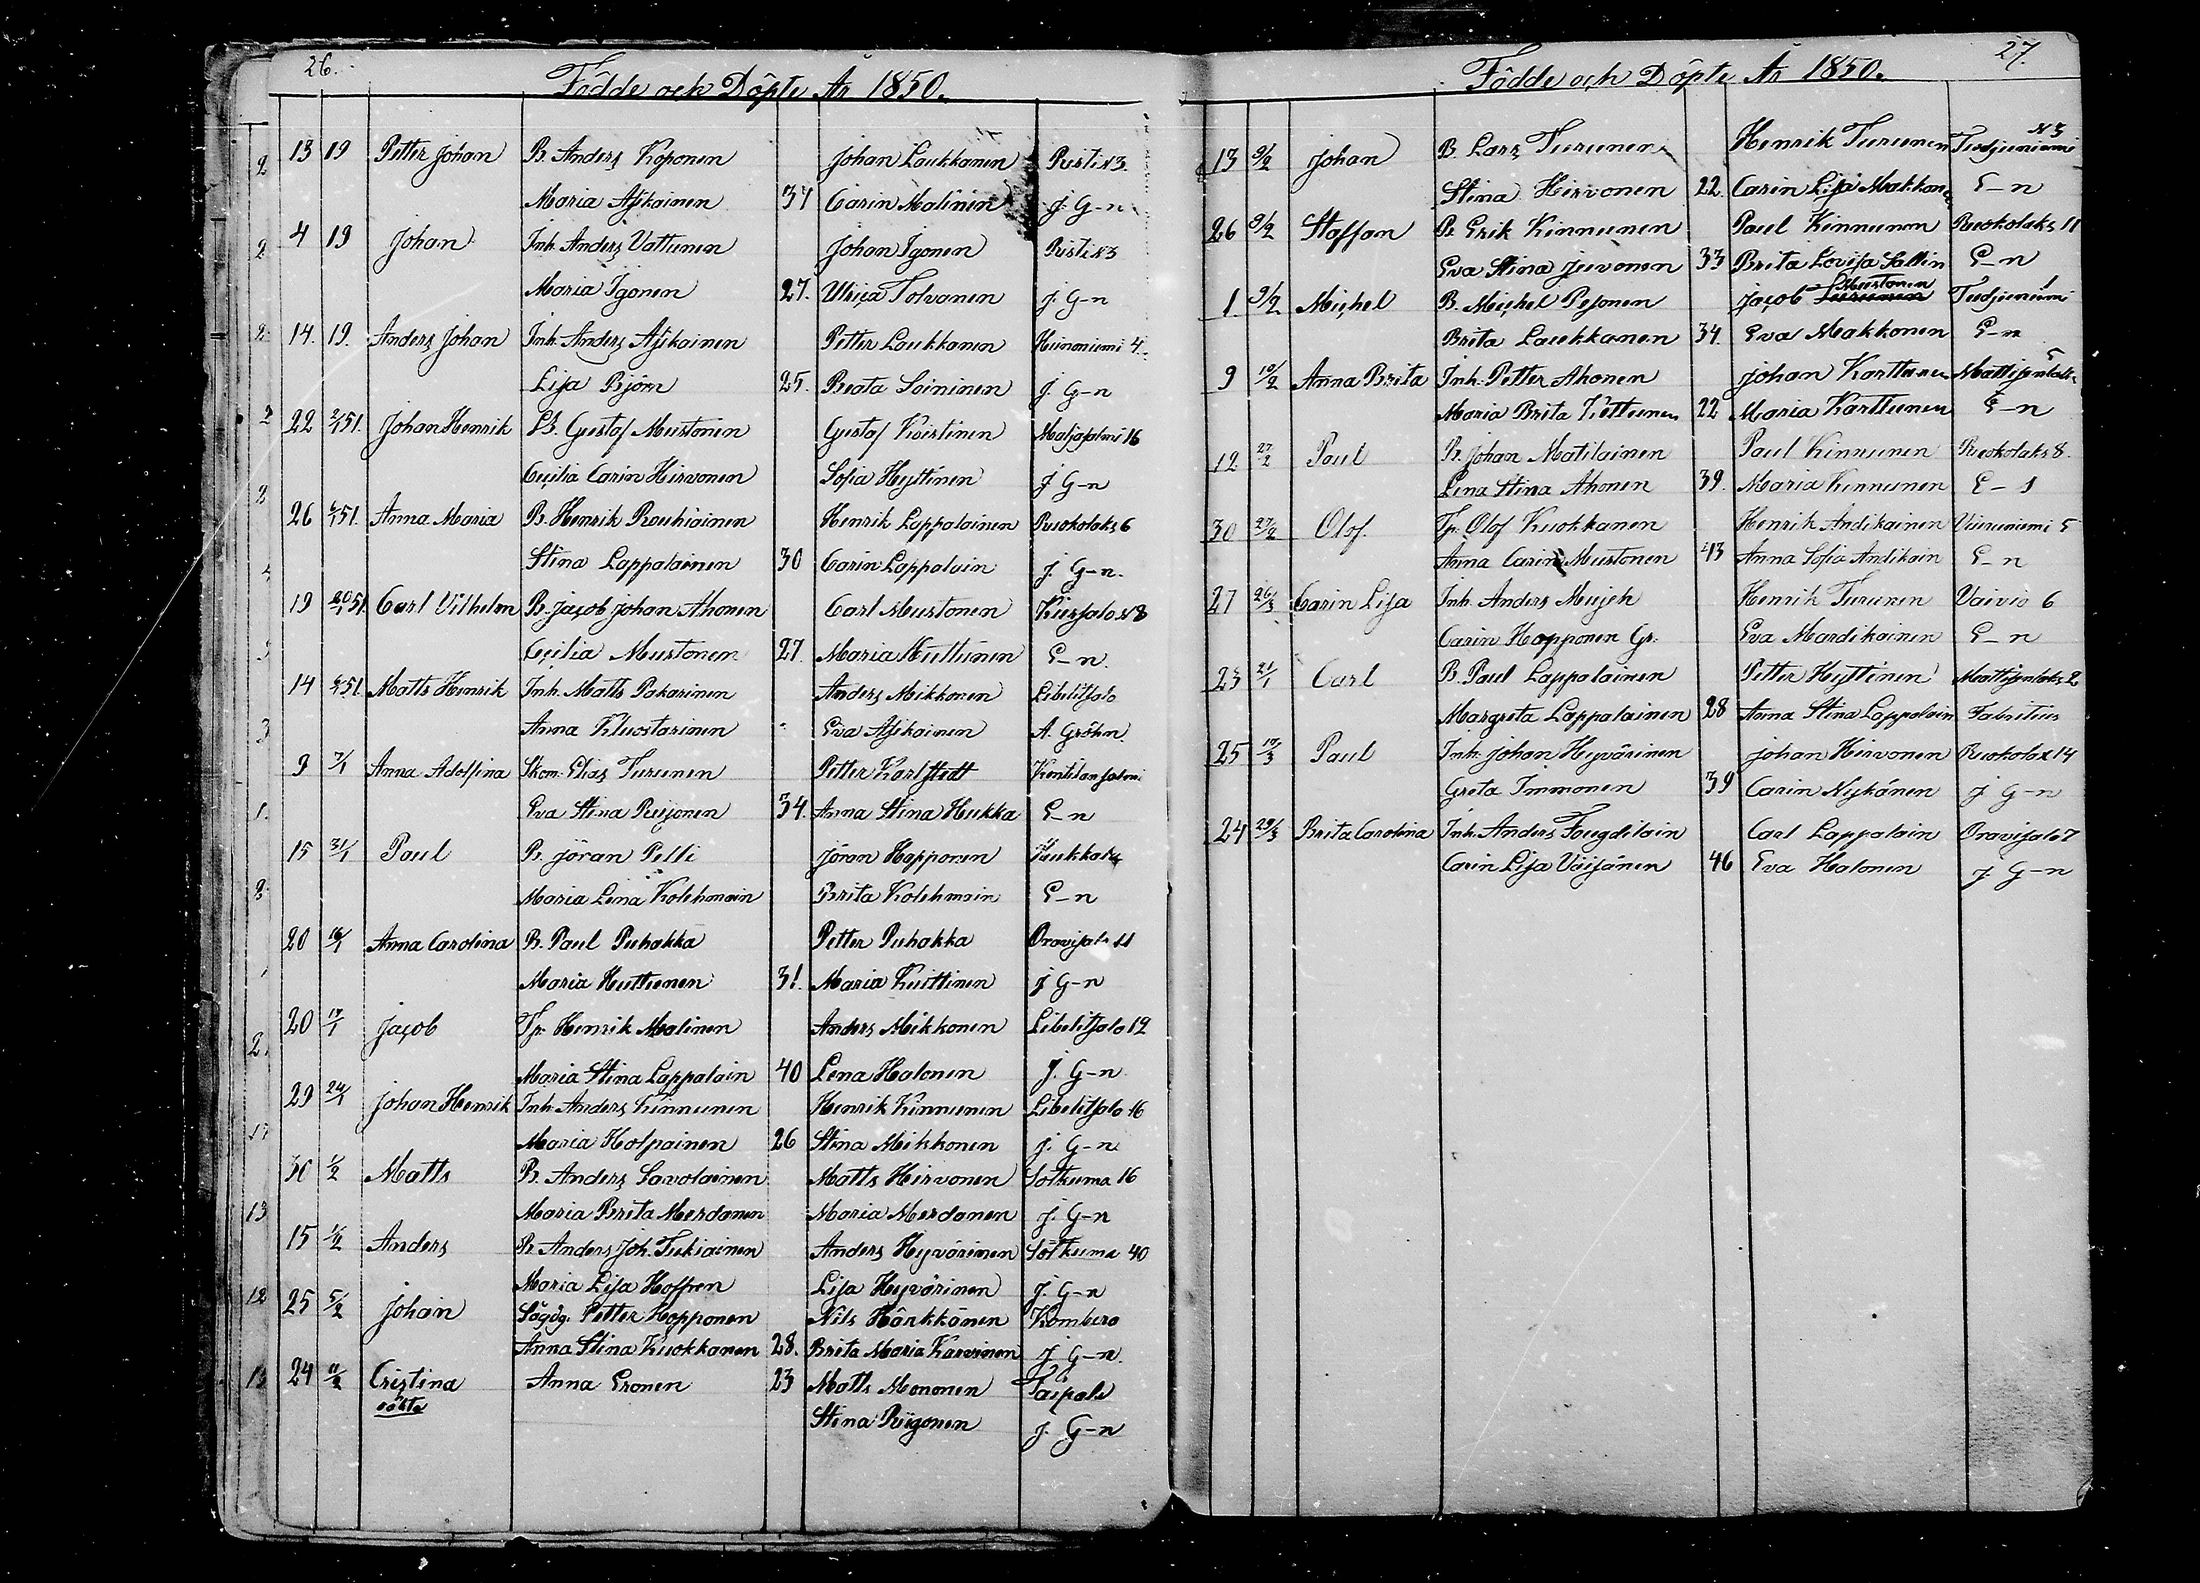 26.
Födde och Döpte År 1850.
13 19 Petter Johan B. Anders Koponen Johan Laukkanen Risti N3.
Maria Asikainen 37 Carin Malinin J. G-n
4 19 Johan Inh. Anders Vattunen Johan Igonen Risti N3
Maria Igonen 27. Ulrica Tolvanen J. G-n
14. 19. Anders Johan Inh. Anders Asikainen Petter Laukkanen Heinoniemi 4.
Lisa Björn 25. Beata Soininen J. G-n
22 2/1 51. Johan Henrik B. Gustaf Mustonen Gustaf Koistinen Maljasalmi 16
Cecilia Carin Hirvonen Sofia Hyttinen J G-n
26 51. Anna Maria B. Henrik Rouhiainen Henrik Lappalainen Ruokolaks 6
Stina Lappalainen 30 Carin Lappalain J. G-n.
19 20/1 51 Carl Vilhelm B. Jacob Johan Ahonen Carl Mustonen N 8
Cecilia Mustonen 27. Maria Huttunen E-n.
14 51. Matts Henrik Inh. Matts Pakarinen Anders Mikkonen Libelitsalo
Anna Kluostarinen - Eva Asikainen A. Gröhn.
9 7/1 Anna Adolfina Skom. Elias Turunen Petter Karlstedt Kontilansalmi
Eva Stina Reijonen 34. Anna Stina Hukka E-n
15 31/1 Paul B. Jöran Pelli Jöran Happonen
Maria Lena Kolehmain Brita Kolehmain E-n
20 16/1 Anna Carolina B. Paul Puhakka Petter Puhakka Oravisalo 11
Maria Huttunen 31. Maria Kuittinen J G-n
20 17/1 Jacob Tp. Henrik Malinen Anders Mikkonen Libelitsalo 12
Maria Stina Lappalain 40 Lena Halonen J. G-n.
29 24/1 Johan Henrik Inh. Anders Kinnunen Henrik Kinnunen Libelitsalo 16
Maria Holpainen 26 Stina Mikkonen J. G-n.
30 1/2 Matts B. Anders Savolainen Matts Hirvonen Sotkuma 16
Maria Brita Merdanen Maria Merdanen J. G-n
15 1/2 Anders B. Anders Joh. Tukiainen Anders Hyvärinen Sotkuma 40
Maria Lisa Hoffren Lisa Hyvärinen J. G-n
25 5/2 Johan Sågdg. Petter Happonen Nils Härkkänen Kombero
Anna Stina Kuokkanen 28. Brita Maria Karvinen J G-n.
24 Cristina Anna Eronen 23 Matts Mononen Taipale
oäkta Stina Riigonen J. G-n
27.
Födde och Döpte År 1850.
13 9/2 Johan B. Lars Turunen Henrik Turunen Tudjuniemi N 3
Stina Hirvonen 22. Carin Lisa Makkonen E-n
26 9/2 Staffan B. Erik Kinnunen Paul Kinnunen Ruokolaks 11
Eva Stina Juvonen 33 Brita Lovisa Sallin E-n
1. 9/2 Michel B. Michel Pesonen Jacob Mustonen Tudjuniemi 1
Brita Laukkanen 34. Eva Makkonen E-n
9 10/2 Anna Brita Inh. Petter Ahonen Johan Karttunen 5
Maria Brita Kettunen 22 Maria Karttunen E-n
12 27/2 Paul B. Johan Matilainen Paul Kinnunen Ruokolaks 8.
Lena Stina Ahonen 39. Maria Kinnunen E-
30 27/2 Olof. Tp. Olof Kuokkanen Henrik Andikainen Viiruniemi 5
Anna Carin Mustonen 43 Anna Sofia Andikain E-n
27 26/3 Carin Lisa Inh. Anders Mujeh Henrik Turunen Vaivio 6
Carin Happonen Gr. Eva Mardikainen E-n
23 21/1 Carl B. Paul Lappalainen Petter Hyttinen Mattisenlaks 2
Margreta Lappalainen 28 Anna Stina Lappalain Fabritius
25 17/3 Paul Inh. Johan Hyvärinen Johan Hirvonen Ruokolax 14
Greta Immonen 39 Carin Nykänen J G-n
24 29/3 Brita Carolina Inh. Anders Fougdilain Carl Lappalain Oravisalo 7
Carin Lisa Väisänen 46 Eva Halonen J G-n